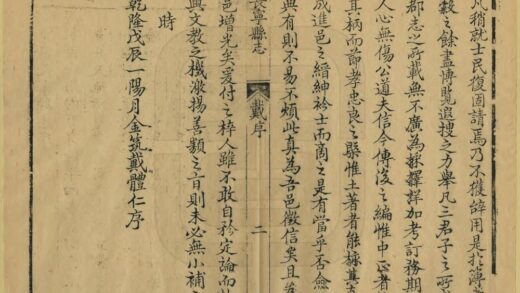 凡稍就士民復固請焉乃不獲辭用是於簿
穀之餘盡博覧遐搜之力舉凡三君子之所
郡志之所載無不廣為採擇詳加考訂務期
人心無傷公道夫信今傳後之編惟中正者
其柄而節孝忠良之槩惟土著者能據其
成進邑之縉紳衿士而商之是有當乎否僉
與有則不易不煩此真為吾邑徵信矣且
長寧縣志
戴序
二
邑增光矣爰付之梓人雖不敢自矜定論而
興文教之機激揚善類之旨則未必無小補
時
乾隆戊辰一陽月金筑戴體仁序